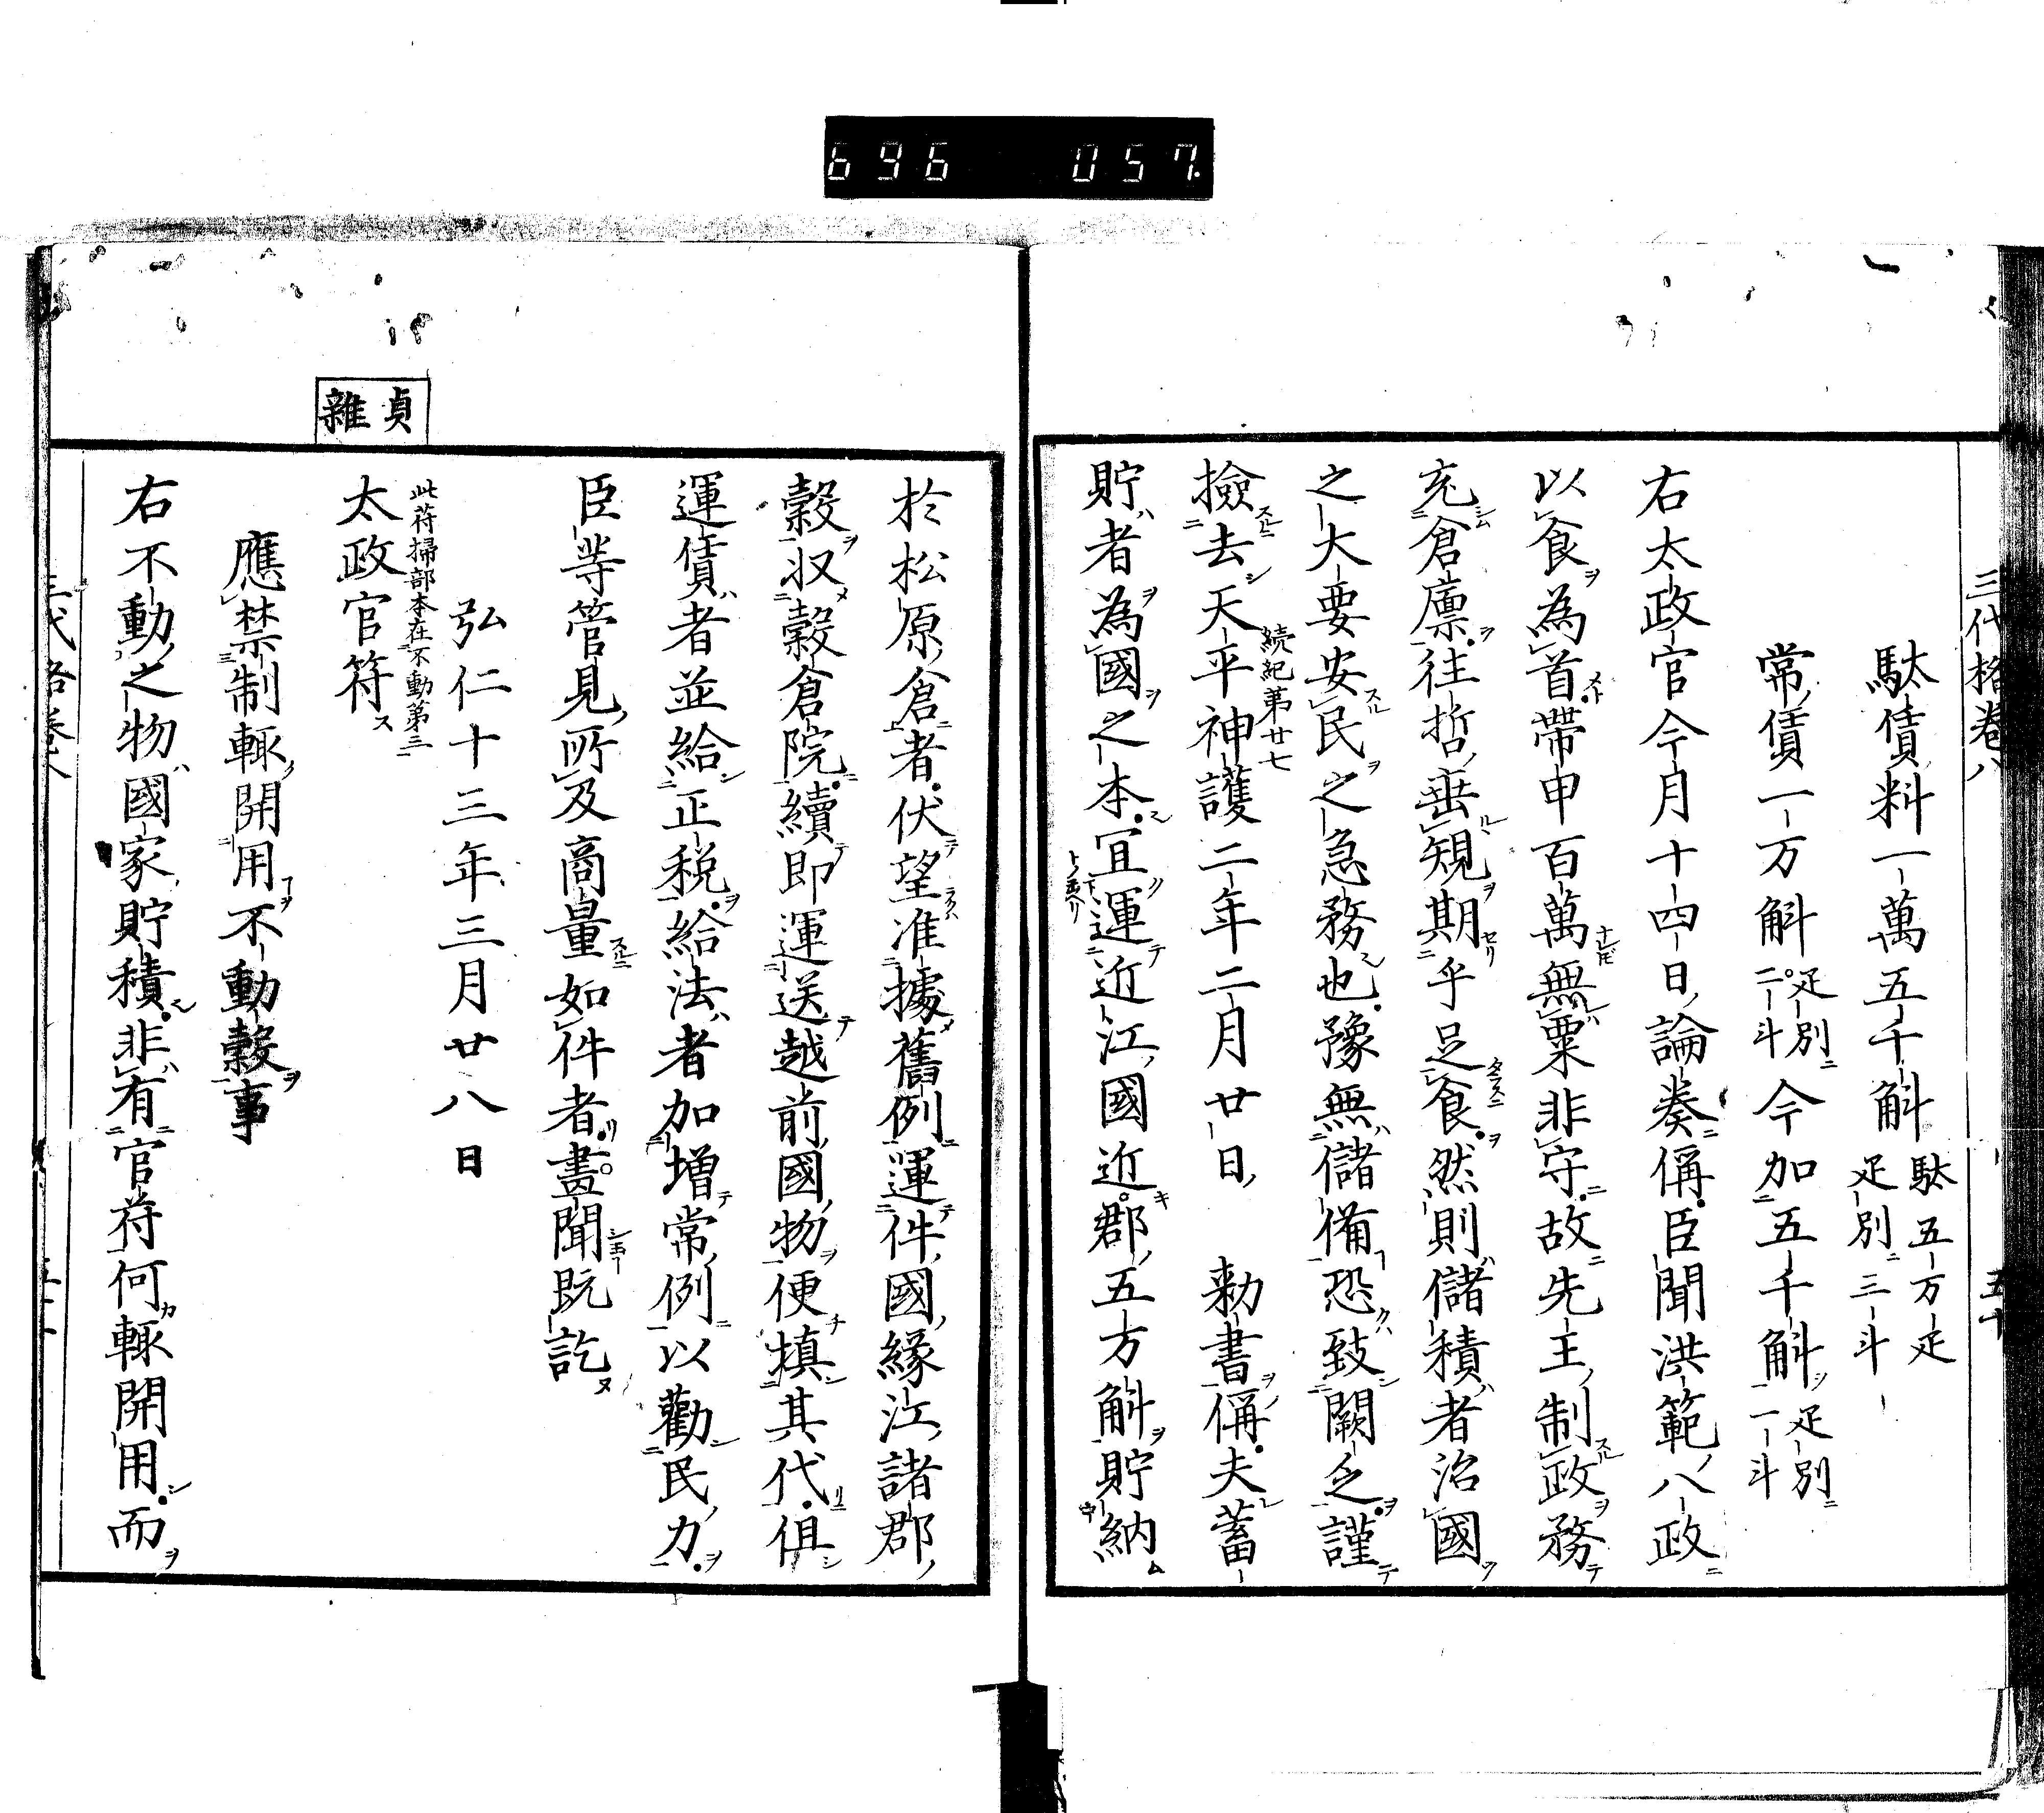 696 057
三代格卷八 五十
駄賃料一萬五千斛駄五万疋疋別三斗
常賃一万斛疋別二斗今加五千斛疋別一斗
右太政官今月十四日論奏偁臣聞洪範八政
以食為首帶甲百萬無粟非守故先王制政務
充倉廩往哲垂規期乎足食然則儲積者治國
之大要安民之急務也豫無儲備恐致闕乏謹
撿去天平神護二年二月廿日 勅書偁夫蓄
続紀第廿七
貯者為國之本宜運近江國近郡五万斛貯納
於松原倉者伏望准據舊例運件國緣江諸郡
穀收穀倉院續即運送越前國物便填其代但
運賃者並給正税給法者加增常例以勸民力
臣等管見所及商量如件者畫聞既訖
弘仁十三年三月廿八日
此符掃部本在不動第三
貞雜
太政官符
應禁制輙開用不動穀事
右不動之物國家貯積非有官符何輙開用而